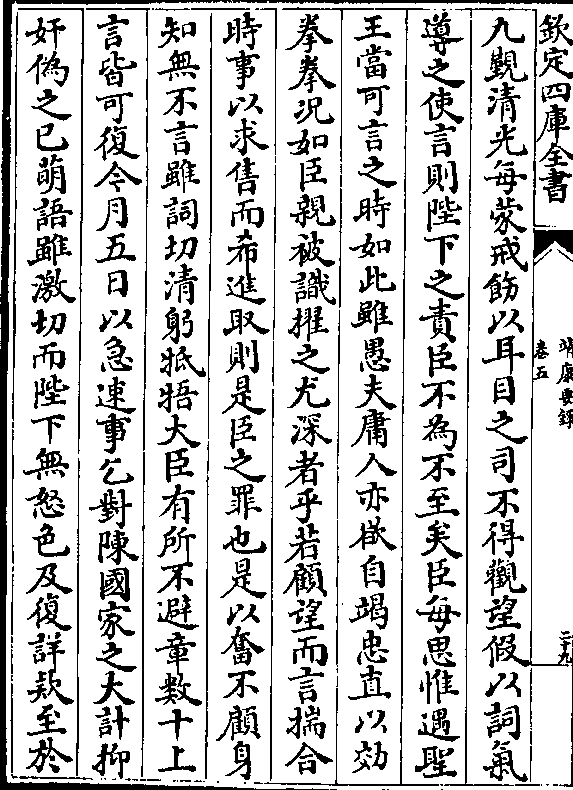 欽定四庫全書
靖康要錄
卷五
三十九
九觀清光每蒙戒飭以耳目之司不得觀望假以詞氣
導之使言則陛下之責臣不為不至矣臣每思惟遇聖
王當可言之時如此雖愚夫庸人亦欲自竭忠直以効
拳拳况如臣親被識擢之尤深者乎若顧望而言揣合
時事以求售而希進取則是臣之罪也是以奮不顧身
知無不言雖詞切清躬牴牾大臣有所不避章數十上
言皆可復今月五日以急速事乞對陳國家之大計抑
奸偽之已萌語雖激切而陛下無怒色及復詳欵至於